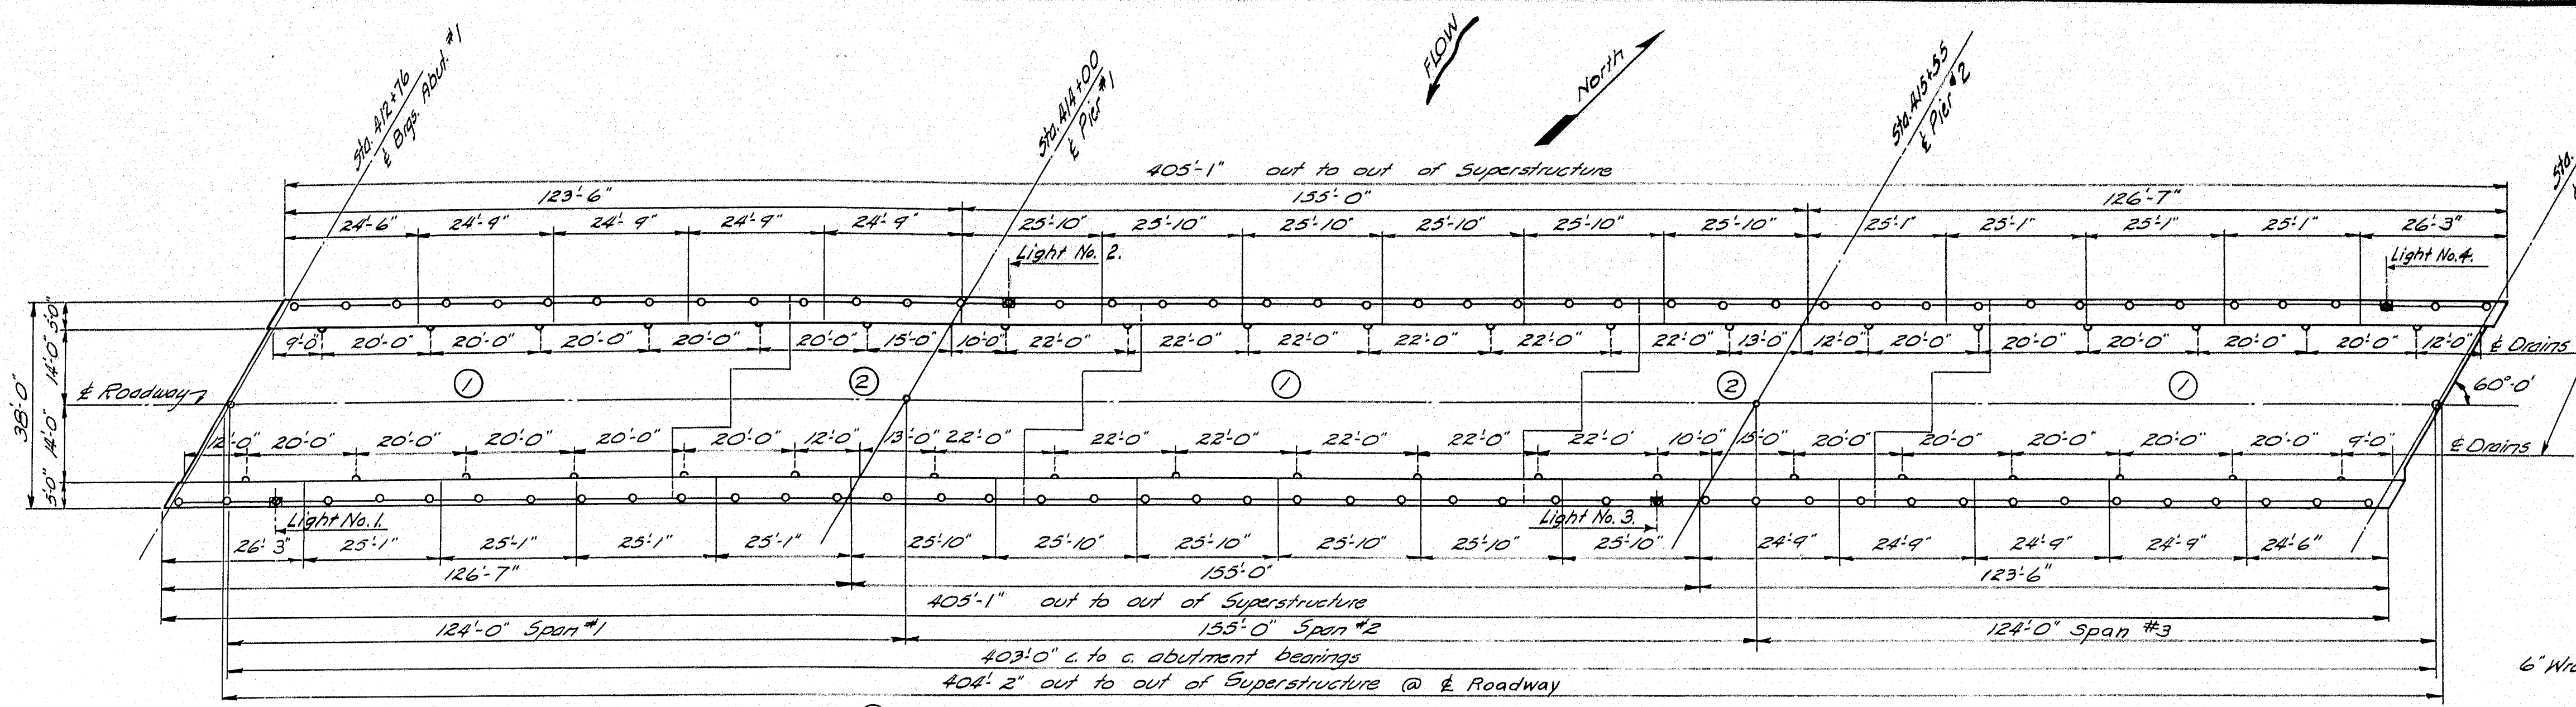 Sta. 412+76
℄ Brgs. Abut. #1
Sta. 414+00
℄ Pier #1
FLOW
North
Sta. 415+55
℄ Pier #2
Sta.
405'-1" out to out of Superstructure
123'-6" 155'-0" 126'-7"
24'-6" 24'-9" 24'-9" 24'-9" 24'-9" 25'-10" 25'-10" 25'-10" 25'-10" 25'-10" 25'-10" 25'-1" 25'-1" 25'-1" 25'-1" 26'-3"
Light No. 2. Light No. 4.
9'-0" 20'-0" 20'-0" 20'-0" 20'-0" 20'-0" 15'-0" 10'-0" 22'-0" 22'-0" 22'-0" 22'-0" 22'-0" 22'-0" 13'-0" 12'-0" 20'-0" 20'-0" 20'-0" 20'-0" 20'-0" 12'-0" ℄ Drains
38'-0" 5'-0" 14'-0" 14'-0" 5'-0"
℄ Roadway 1 2 1 2 1 60°-0'
12'-0" 20'-0" 20'-0" 20'-0" 20'-0" 20'-0" 12'-0" 13'-0" 22'-0" 22'-0" 22'-0" 22'-0" 22'-0" 22'-0' 10'-0" 15'-0" 20'-0" 20'-0" 20'-0" 20'-0" 20'-0" 9'-0" ℄ Drains
Light No. 1. Light No. 3.
26'-3" 25'-1" 25'-1" 25'-1" 25'-1" 25'-10" 25'-10" 25'-10" 25'-10" 25'-10" 25'-10" 24'-9" 24'-9" 24'-9" 24'-9" 24'-6"
126'-7" 155'-0" 123'-6"
405'-1" out to out of Superstructure
124'-0" Span #1 155'-0" Span #2 124'-0" Span #3
403'-0" c. to c. abutment bearings
404'-2" out to out of Superstructure @ ℄ Roadway
6" Wro